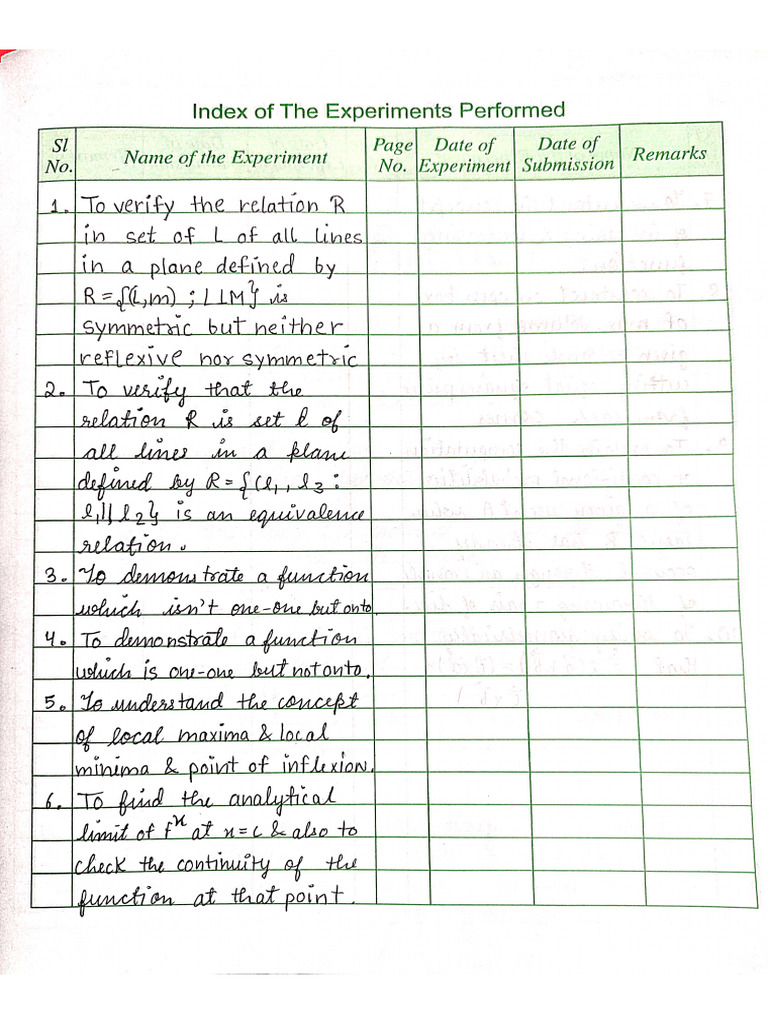 Index of The Experiments Performed
Sl No. Name of the Experiment Page No. Date of Experiment Date of Submission Remarks
1. To verify the relation R
in set of L of all lines
in a plane defined by
R = {(L,m) ; L⊥M} is
symmetric but neither
reflexive nor symmetric
2. To verify that the
relation R is set l of
all lines in a plane
defined by R = {(l₁, l₃ :
l₁|| l₂} is an equivalence
relation.
3. To demonstrate a function
which isn't one-one but onto.
4. To demonstrate a function
which is one-one but not onto.
5. To understand the concept
of local maxima & local
minima & point of inflexion.
6. To find the analytical
limit of fˣ at x = c & also to
check the continuity of the
function at that point.